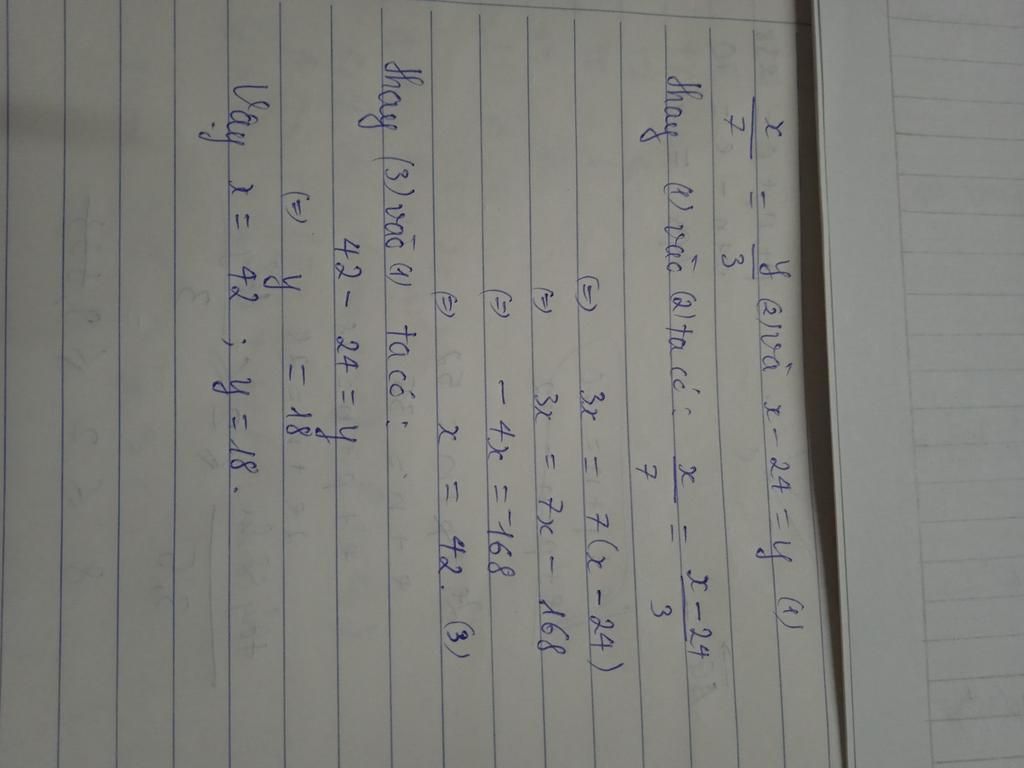 x/7 = y/3 (2) và x - 24 = y (1)
thay (1) vào (2) ta có: x/7 = x-24/3
(=) 3x = 7(x - 24)
(=) 3x = 7x - 168
(=) - 4x = -168
(=) x = 42. (3)
thay (3) vào (1) ta có:
42 - 24 = y
(=) y = 18
Vậy x = 42 ; y = 18.